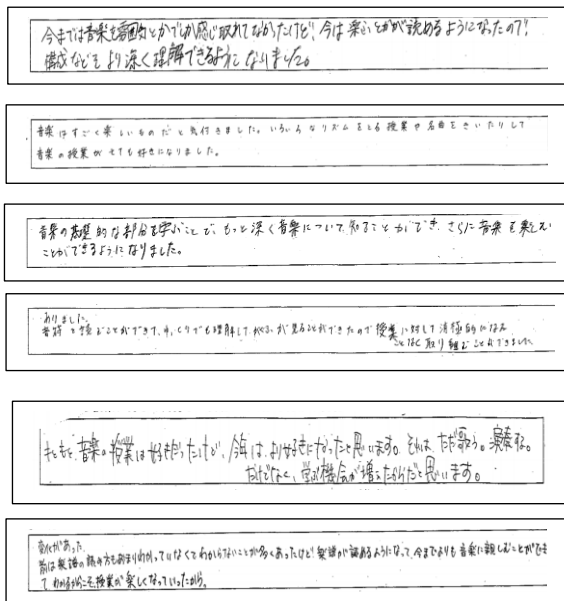 今までは音楽を雰囲気とかでしか感じ取れてなかったけど、今は楽ふとかが読めるようになったので、
構成なども より深く理解できるように なりました。
音楽はすごく楽しいものだと気付きました。いろいろなリズムをとる授業や名曲をきいたりして
音楽の授業がとても好きになりました。
音楽の基礎的な部分を学ぶことで、もっと深く音楽について知ることができ、さらに音楽を楽しむ
ことができるようになりました。
ありました。
音符を読むことができて、ゆっくりでも理解して、が見ることができたので授業に対して消極的になる
ことなく取り組むことができました
もともと音楽の授業は好きだったけど、今年は、より好きになったと思います。それは、ただ歌う。演奏する。
だけでなく、学ぶ機会が増えたからだと思います。
変化があった。
前は楽譜の読み方もあまりわかっていなくてわからないことが多くあったけど楽譜が読めるようになって、今までよりも音楽に親しむことができ
て わかるからこそ授業が楽しくなっていったから。